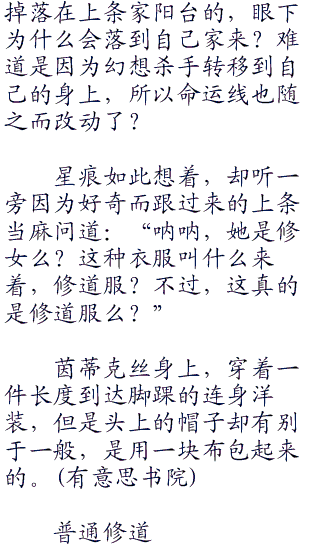 掉落在上条家阳台的，眼下
为什么会落到自己家来？难
道是因为幻想杀手转移到自
己的身上，所以命运线也随
之而改动了？
星痕如此想着，却听一
旁因为好奇而跟过来的上条
当麻问道：“呐呐，她是修
女么？这种衣服叫什么来
着，修道服？不过，这真的
是修道服么？”
茵蒂克丝身上，穿着一
件长度到达脚踝的连身洋
装，但是头上的帽子却有别
于一般，是用一块布包起来
的。(有意思书院)
普通修道